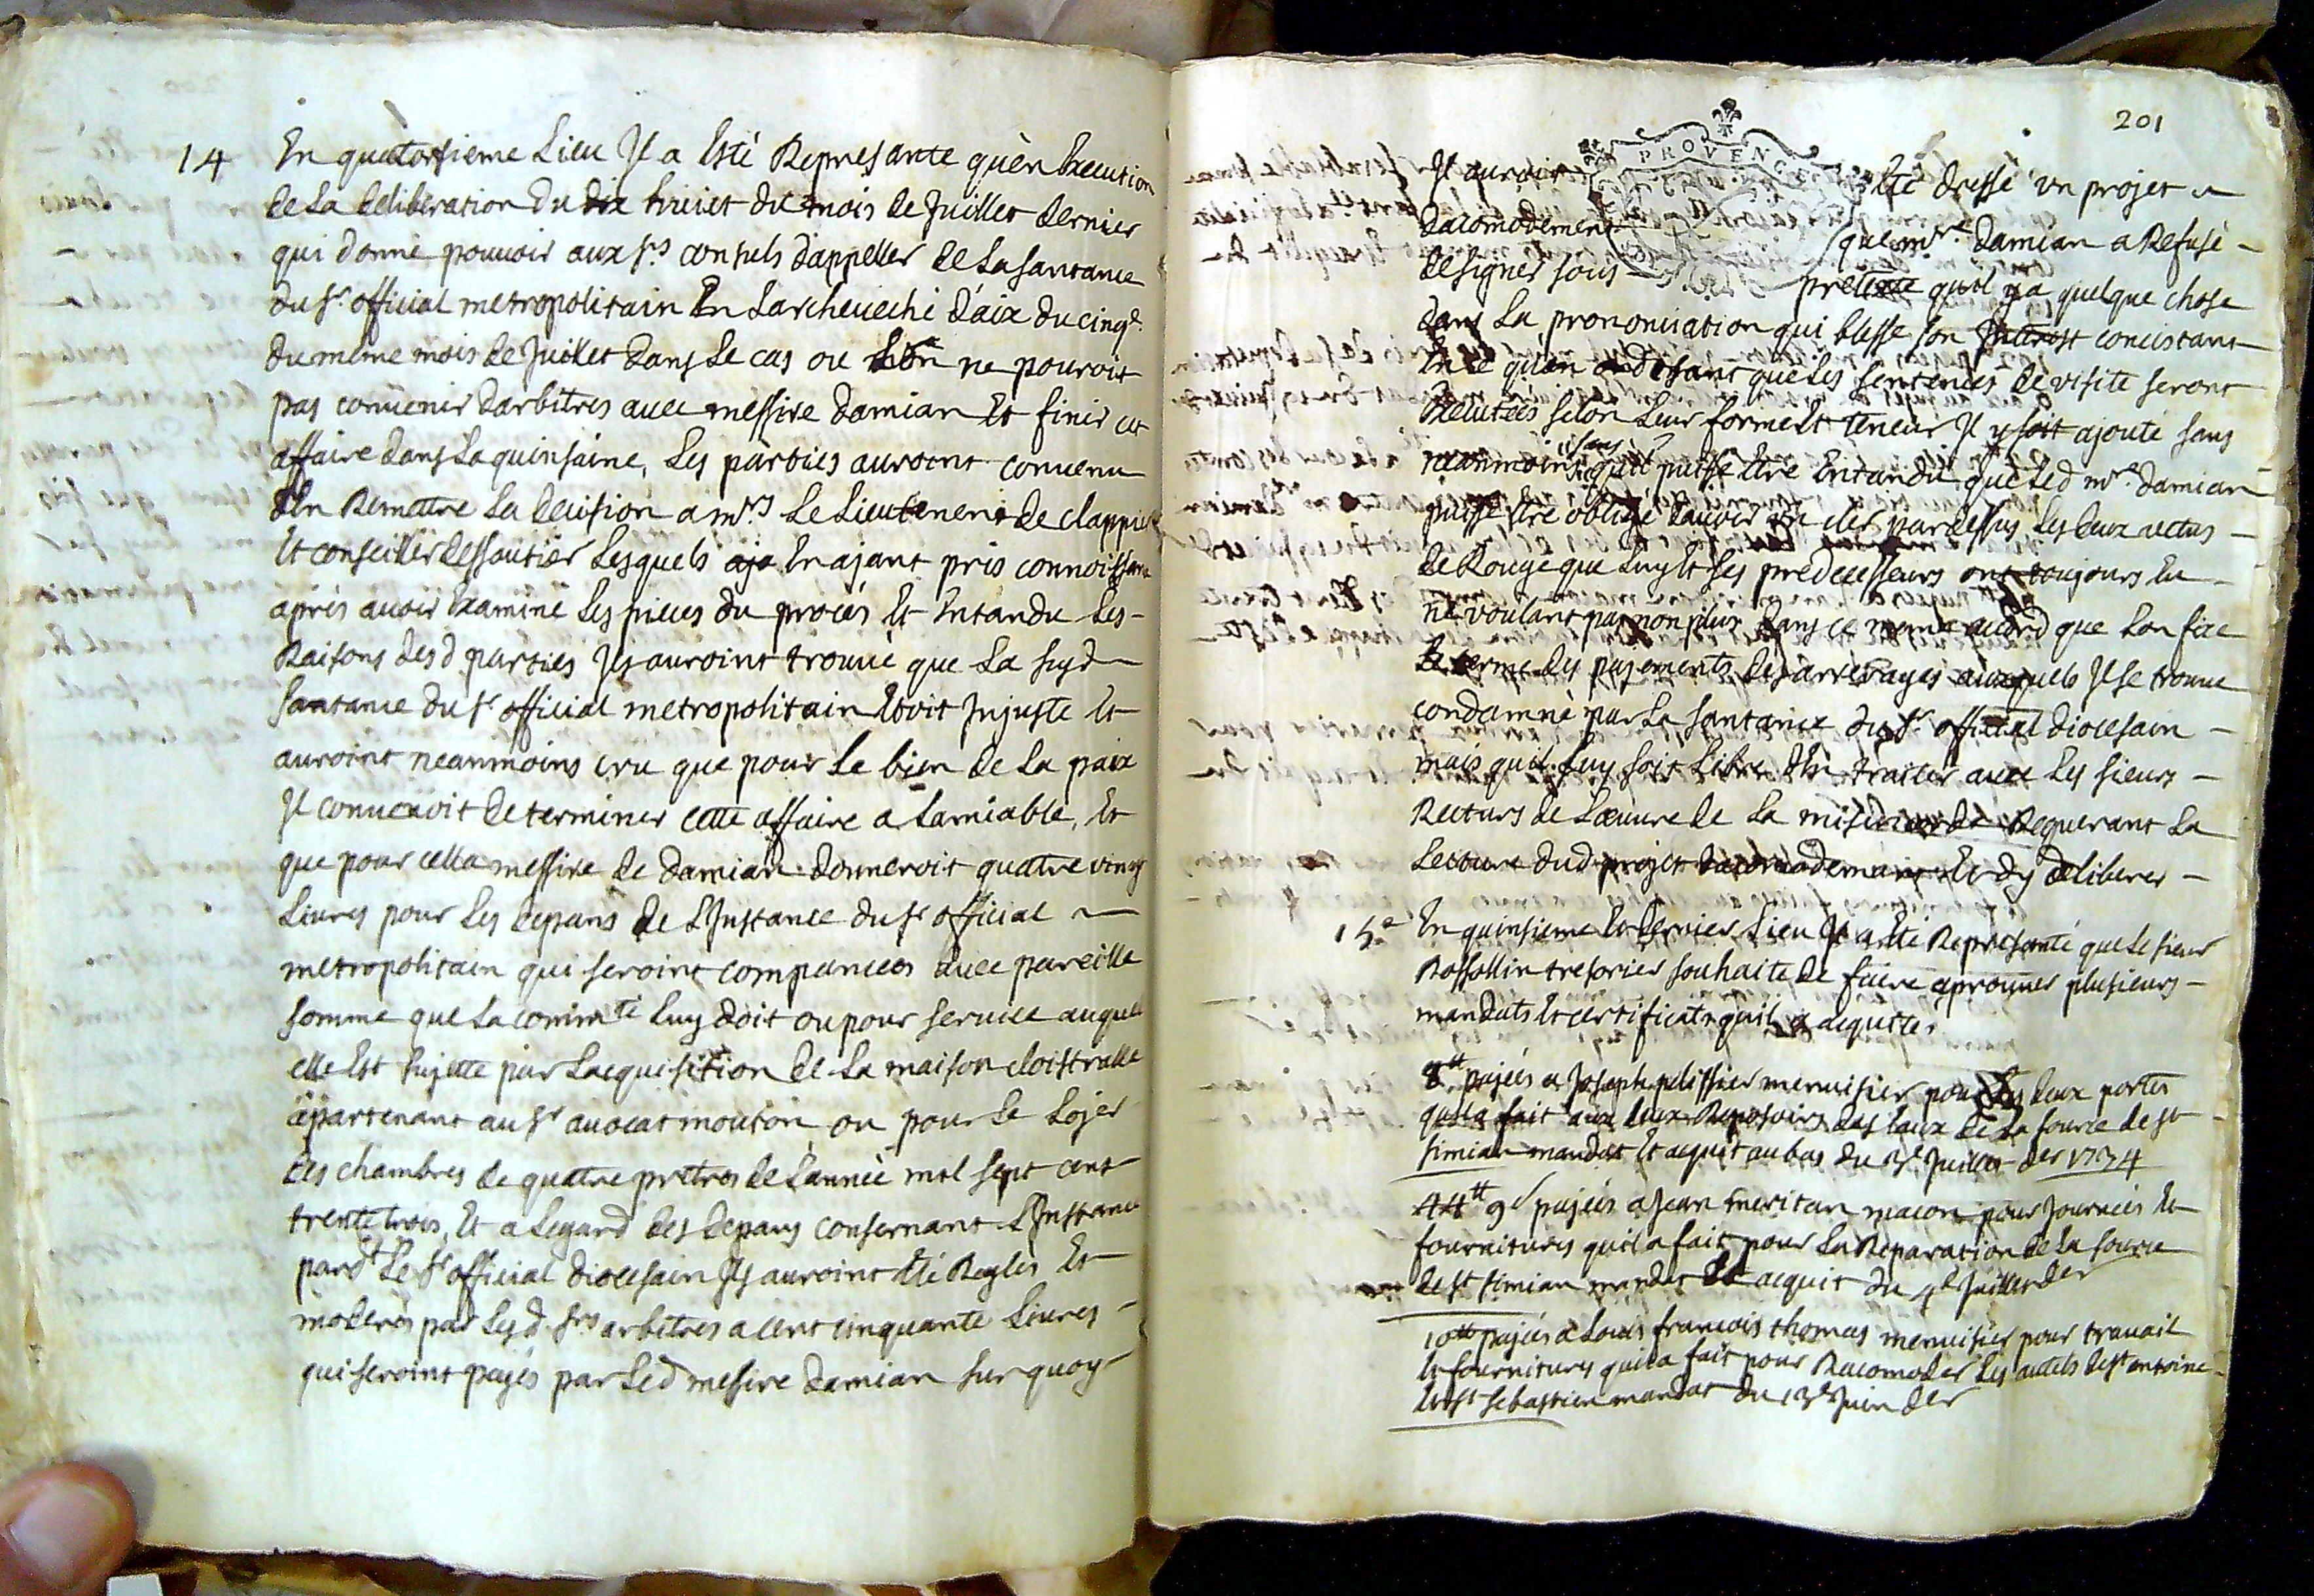 14 En quatorsieme Lieu Il a Esté Represanté qu'en Execution
de La deliberation du dix huiet du mois de Juillet dernier
qui donne pouvoir aux srs consuls dappeller de La santance
du sr official metropolitain En Larcheveché d'aix du cinqe
du même mois de Juillet dans Le cas ou Lon ne pouroit
pas convenir darbitres avec messire damian Et finir cet
affaire dans La quinsaine, Les parties auroint convenu
dEn Remettre La decision a mrs Le Lieutenent de clappiers
Et conseiller dessautier Lesquels aja En ajant pris connoissance
aprés avoir Examiné Les pieces du procés Et Entandu Les
Raisons desd parties Ils auroint trouvé que La susd
santance du sr official metropolitain Etoit Injuste Et
auroint neanmoins cru que pour Le bien de La paix
Il convenoit de terminer cette affaire a Lamiable, Et
que pour cella messire de damian donneroit quattre vingt
Livres pour Les depans de L'Instance du sr official
metropolitain qui seroint compancées avec pareille
somme que La commté Luy doit ou pour service auquel
elle Est sujette par Lacquisition de La maison cloistralle
apartenant au sr avocat mouton ou pour Le Lojer
des chambres de quattre prètres de Lannée mil sept cent
trente trois, Et a Legard des depans consernant L'Instance
pardt Le sr official diocesain Ils auroint Eté Reglés Et
moderés par Lesd srs arbitres a cent cinquante Livres
qui seroint payés par Led messire damian sur quoy
201
PROVENCE
Il auroit Eté dressé un projet
dacomodement que mre damian a Refusé
de signer sous pretexte quil y a quelque chose
dans La prononciation qui blesse son Interest concistant
En ce qu'en ordonant que Les sentences de visite seront
Executées selon Leur forme Et teneur Il y soit ajouté sans
neanmoins sans quil puisse Etre Entandu que Led mre damian
puisse Etre obligé d'avoir un cler par dessus Les deux vetus
de Rouge que Luy Et ses predecesseurs ont toujours Eu
ne voulant pas non plus dans ce meme acord que Lon fixe
Le terme des pajements des arrerages auxquels Il se trouve
condamné par La santance du sr official diocesain
mais quil Luy soit Libre dEn traiter avec Les sieurs
Recteurs de Lœuvre de La misericorde Requerant La
Lecture dud projet dacomodement Et dy deliberer
15e En quinsieme Et dernier Lieu Il a Eté Represanté que Le sieur
Rossollin tresorier souhaite de faire aprouver plusieurs
mandats Et certificats quil a acquittés
8tt pajées a Joseph pelissier menuisier pour Les deux portes
quil a fait aux deux Reposoirs des Eaux de La source de st
simian mandat Et acquit au bas du 3e Juillet der 1734
44tt 9s pajées a Jean meritan macon pour Journées Et
fournitures quil a fait pour La Reparation de La source
de st simian mandat Et acquit du 4e Juillet der
10tt pajées a Louis francois thomas menuisier pour travail
Et fournitures quil a fait pour Racomoder Les autels de st antoine
Et st sebastien mandat du 13e Juin der